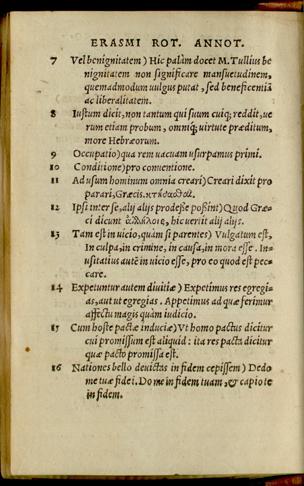 ERASMI ROT. ANNOT.
7 Vel benignitatem) Hic palàm docet M. Tullius be
nignitatem non significare mansuetudinem,
quemadmodum uulgus putat, sed beneficentiã
ac liberalitatem.
8 Iustum dicit, non tantum qui suum cuiq; reddit, ue
rum etiam probum, omniq; uirtute præditum,
more Hebræorum.
9 Occupatio) qua rem uacuam usurpamus primi.
10 Conditione) pro conuentione.
11 Ad usum hominum omnia creari) Creari dixit pro
parari, Græcis. κτίζεσθαι.
12 Ipsi inter se, alij alijs prodesse possint) Quod Græ
ci dicunt ἀλλήλοις, hic uertit alij alijs.
13 Tam est in uicio, quàm si parentes) Vulgatum est,
In culpa, in crimine, in causa, in mora esse. In-
usitatius autẽ in uicio esse, pro eo quod est pec-
care.
14 Expetuntur autem diuitiæ) Expetimus res egregi-
as, aut ut egregias. Appetimus ad quæ ferimur
affectu magis quàm iudicio.
15 Cum hoste pactæ induciæ) Vt homo pactus dicitur
cui promissum est aliquid: ita res pacta dicitur
quæ pacto promissa est.
16 Nationes bello deuictas in fidem cepissem) Dedo
me tuæ fidei. Do me in fidem tuam, & capio te
in fidem.